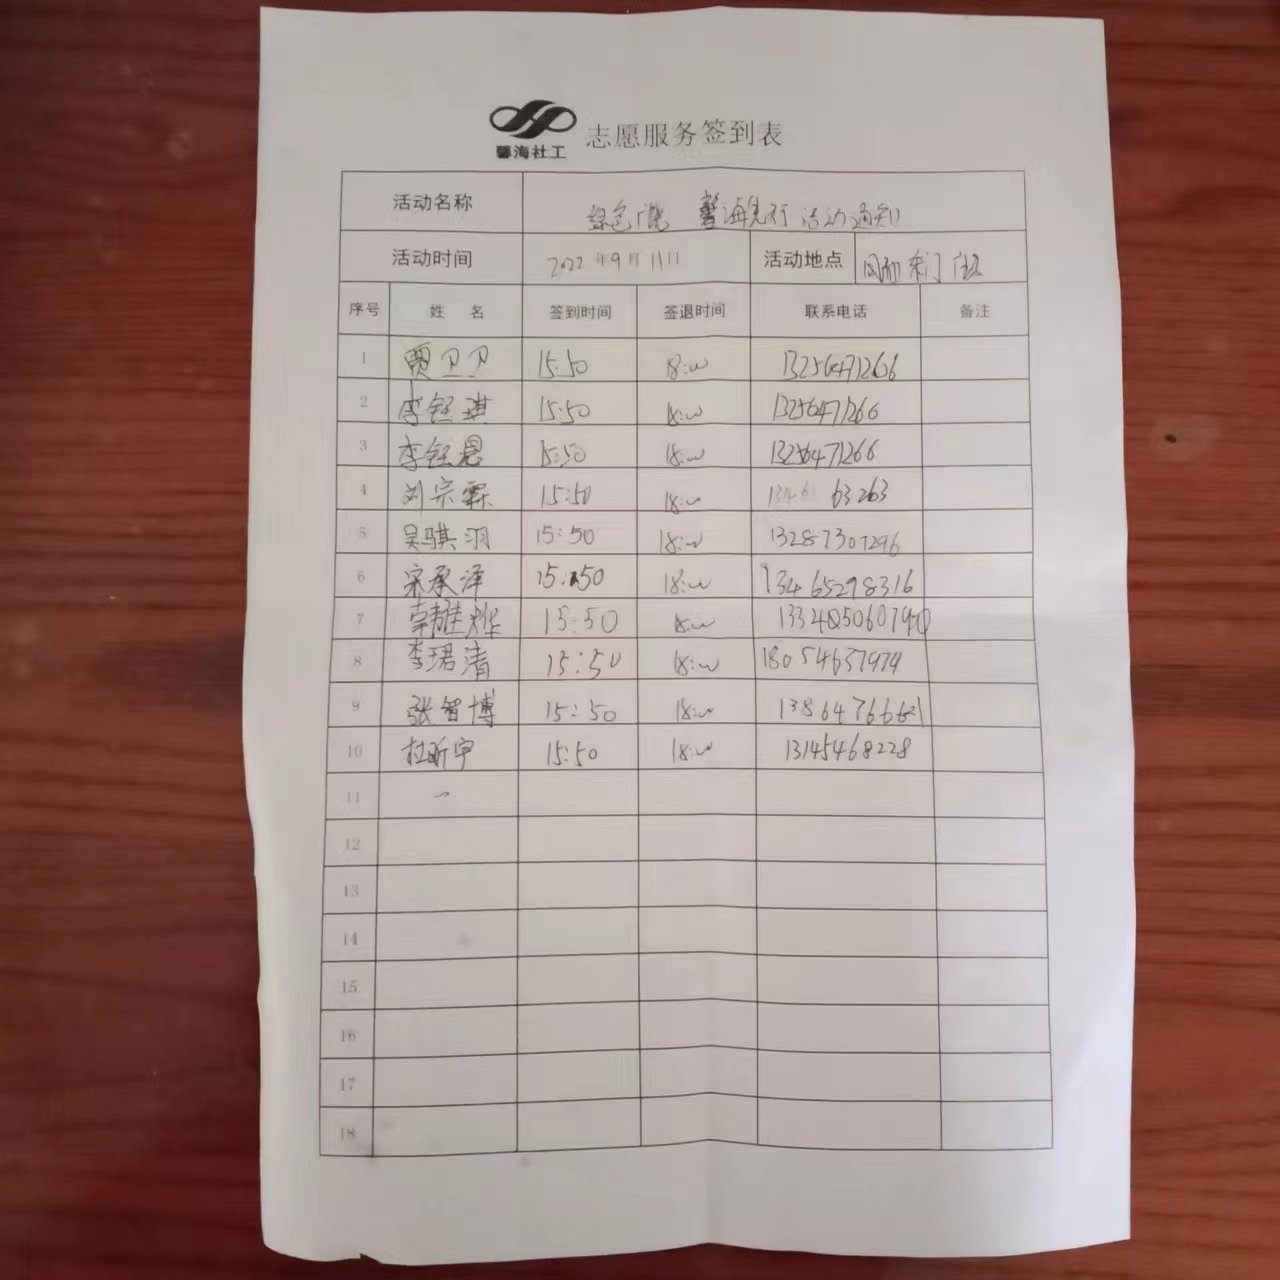 馨海社工
志愿服务签到表
活动名称 绿色 馨海先行 活动通知
活动时间 2022年9月11日 活动地点 东门
序号 姓 名 签到时间 签退时间 联系电话 备注
1 贾卫卫 15:50 18:00
2 李钰琪 15:50 18:00 13256471266
3 李钰恩 15:50 18:00 13256471266
4 刘宗霖 15:50 18:00 63263
5 吴骐羽 15:50 18:00 13287307296
6 宋承泽 15:50 18:00 13465298316
7 15:50 18:00
8 李珺清 15:50 18:00 18054657979
9 张智博 15:50 18:00
10 杜昕宇 15:50 18:00 13145468228
11
12
13
14
15
16
17
18